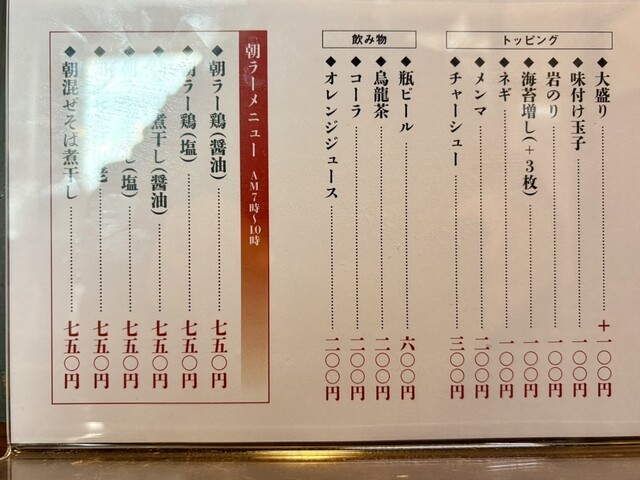 トッピング
◆大盛り………＋一〇〇円
◆味付け玉子………一〇〇円
◆岩のり………一〇〇円
◆海苔増し(+3枚)………一〇〇円
◆ネギ………一〇〇円
◆メンマ………二〇〇円
◆チャーシュー………三〇〇円
飲み物
◆瓶ビール………六〇〇円
◆烏龍茶………二〇〇円
◆コーラ………二〇〇円
◆オレンジジュース………二〇〇円
朝ラーメニュー AM7時〜10時
◆朝ラー鶏(醤油)………七五〇円
◆朝ラー鶏(塩)………七五〇円
◆煮干し(醤油)………七五〇円
◆し(塩)………七五〇円
◆………七五〇円
◆朝混ぜそば煮干し………七五〇円